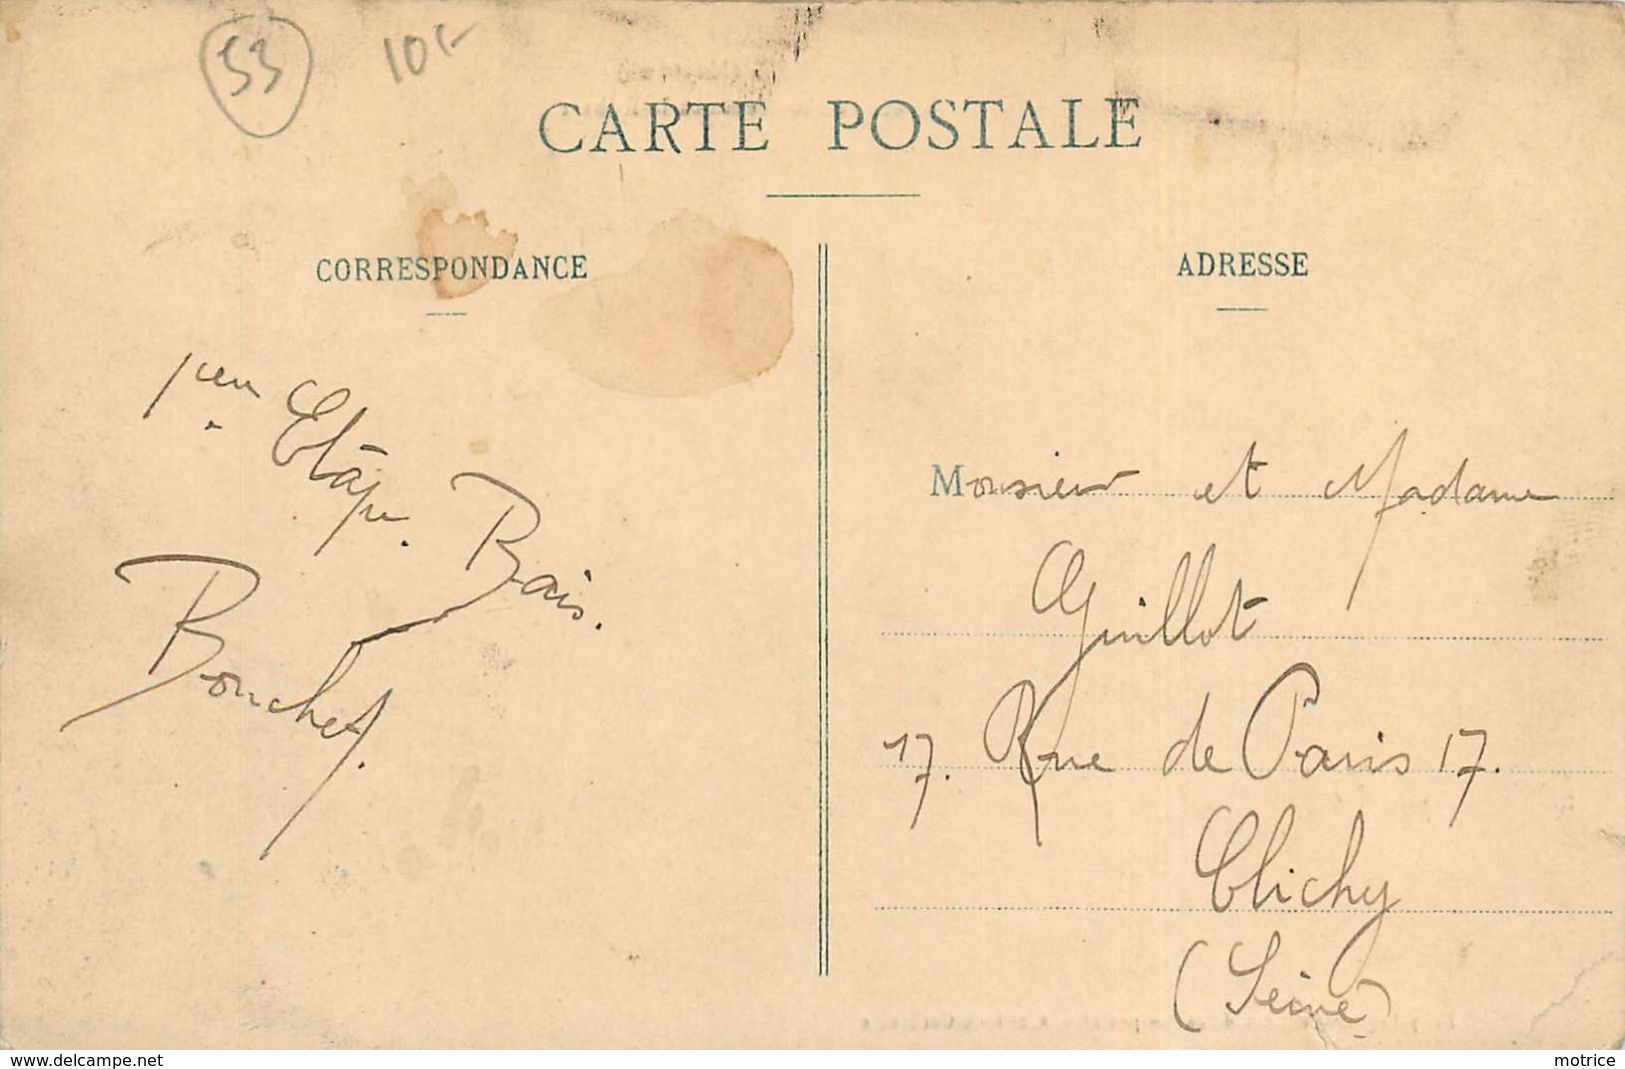 53 10-
CARTE POSTALE
CORRESPONDANCE
1er Etape. Bais.
Bouchet.
ADRESSE
Monsieur et Madame
Guillot
17. Rue de Paris 17.
Clichy
(Seine)
www.delcampe.net
motrice